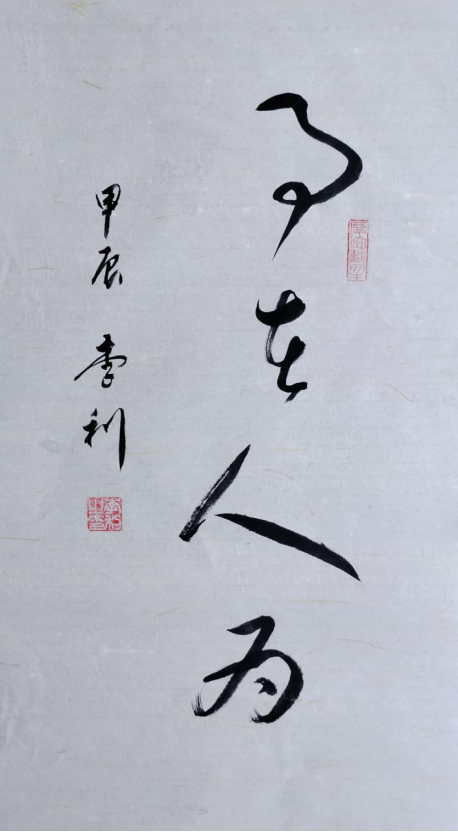 事在人为
甲辰 李利